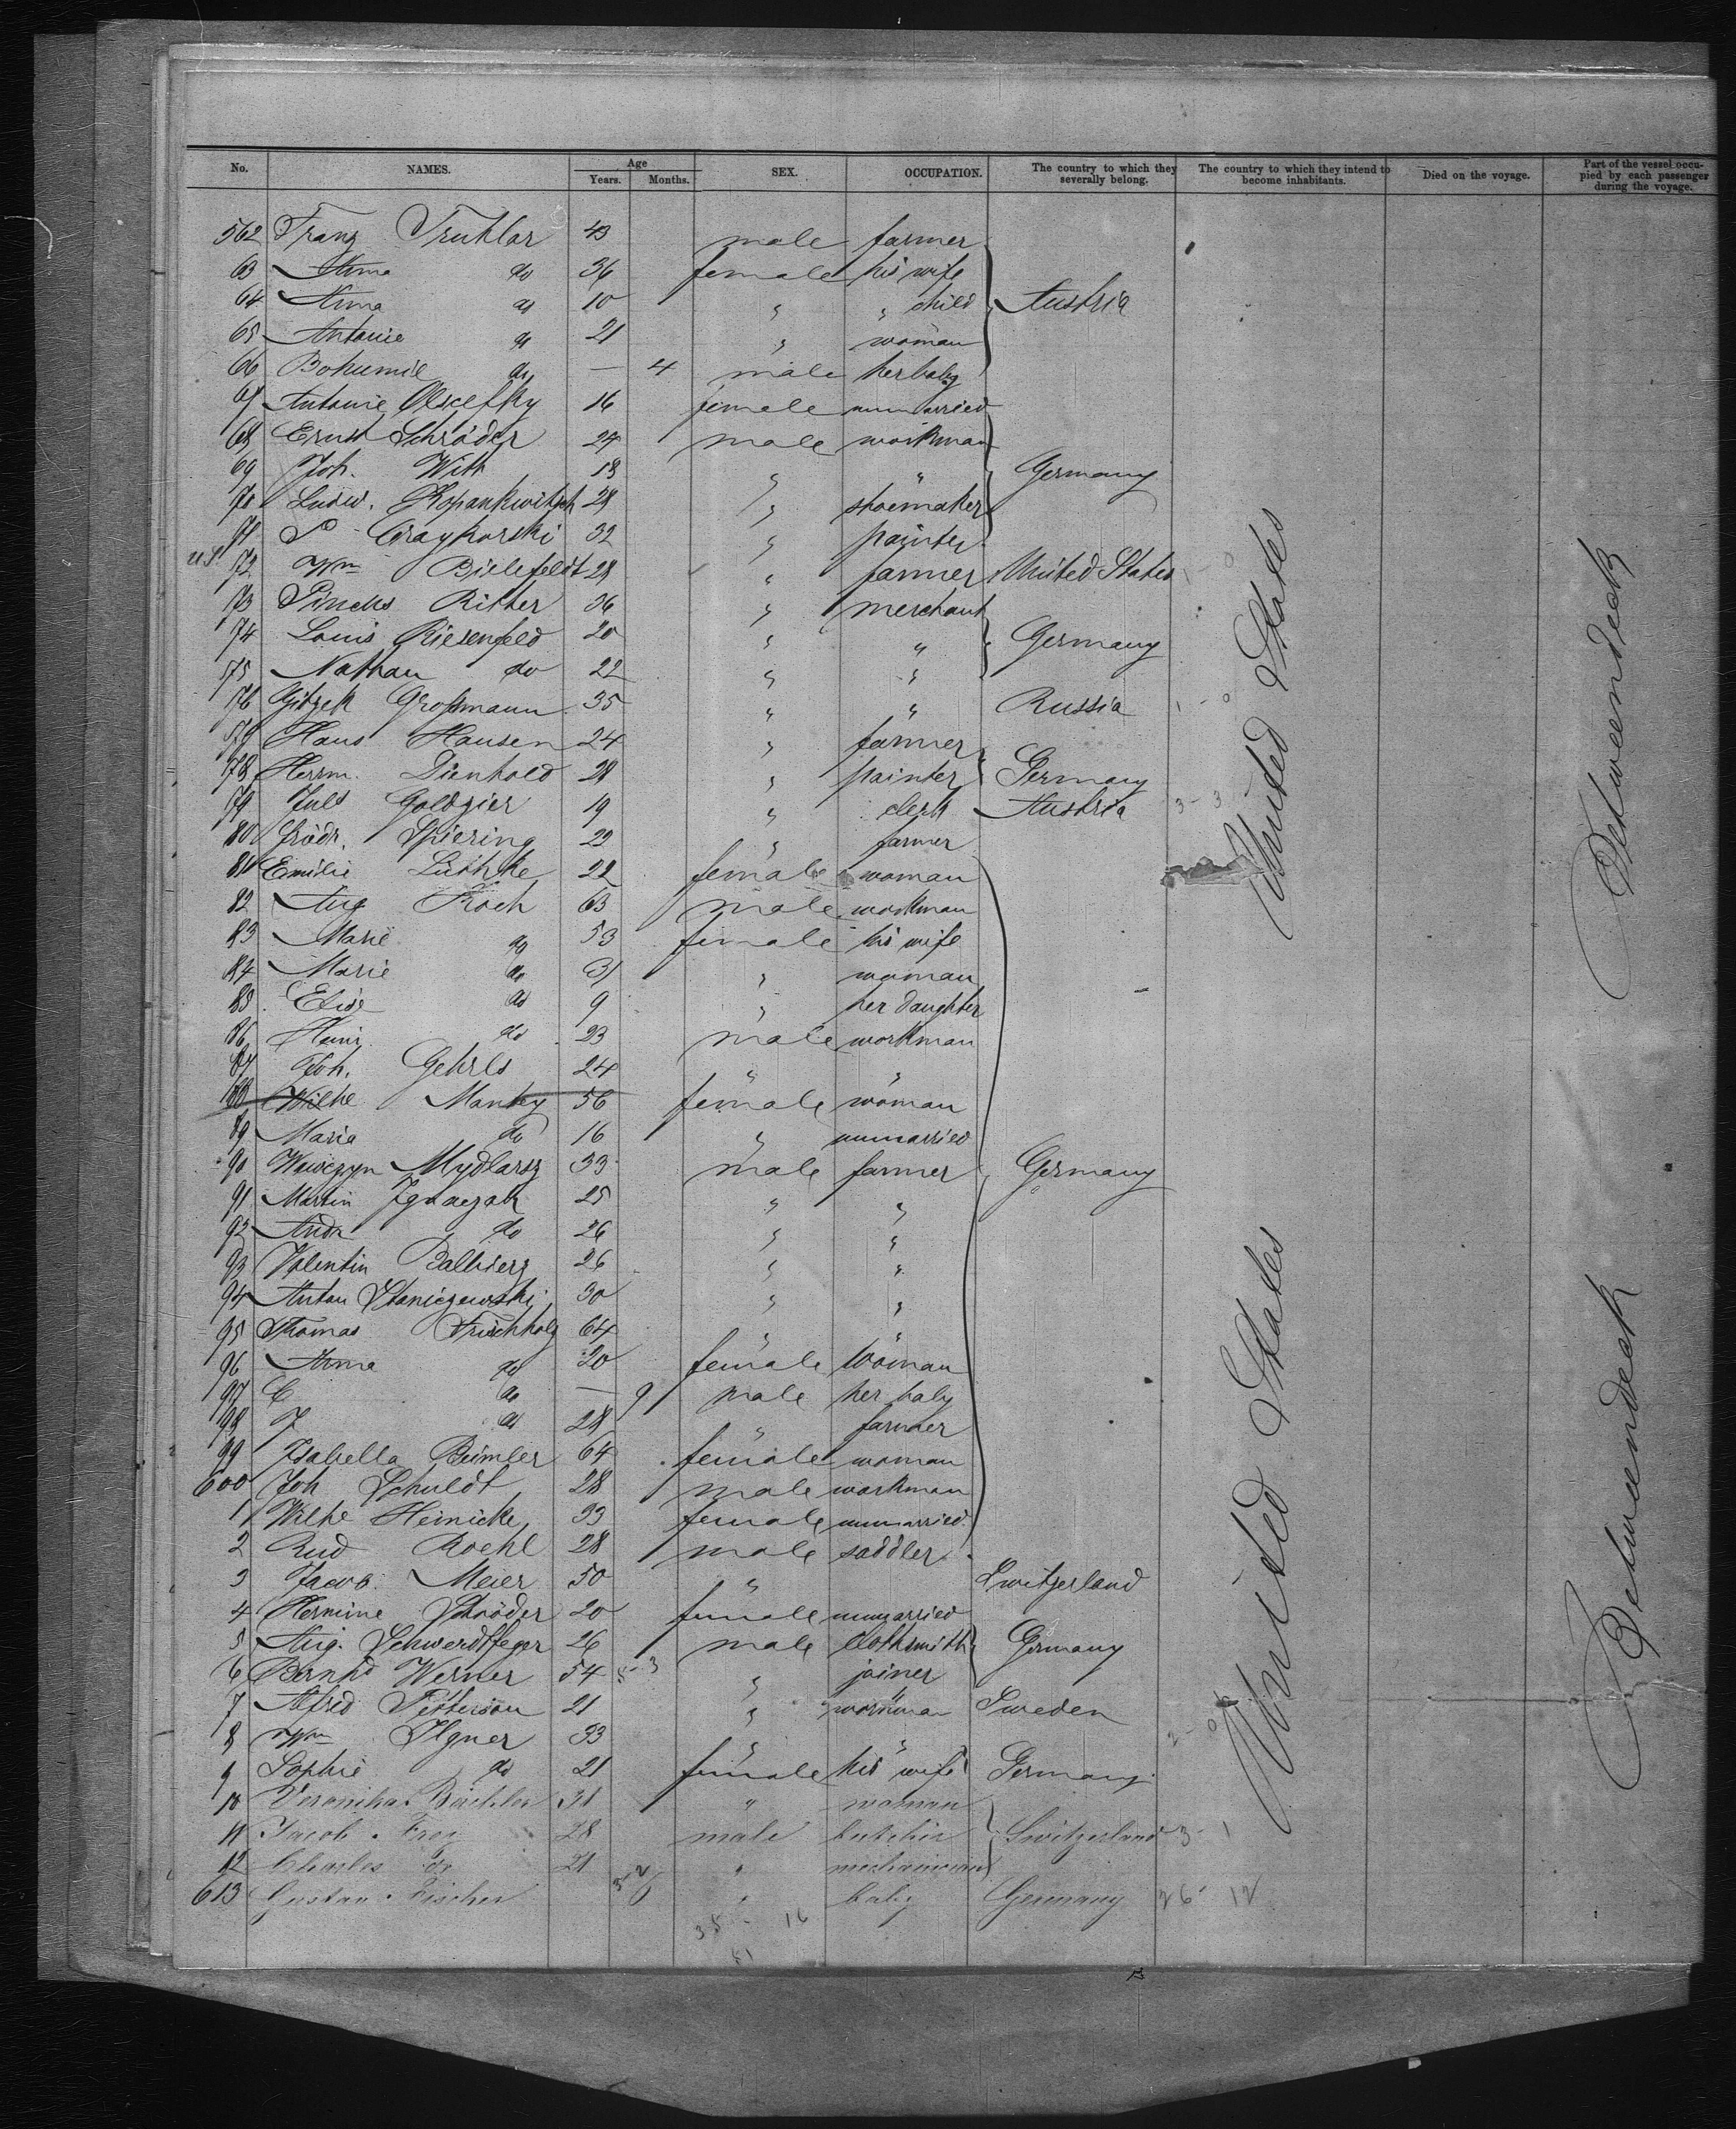 No. NAMES. Age Years. Months. SEX. OCCUPATION. The country to which they severally belong. The country to which they intend to become inhabitants. Died on the voyage. Part of the vessel occupied by each passenger during the voyage.
562 Franz Truhlar 43 male farmer
63 Anna do 36 female his wife
64 Anna do 10 " " child Austria
65 Antonie do 21 " woman
66 Bohumil do — 4 male her baby
67 Antonie 16 female unmarried
68 Ernst Schröder 24 male workman
69 Joh. With 18 " " Germany
70 Ludw. Kopankwitsch 28 " shoemaker
71 P Graykorski 32 " painter
U.S. 72 Wm Bielefeldt 28 " farmer United States
73 Pincks Ritter 36 " merchant
74 Louis Riesenfeld 20 " " Germany
75 Nathan do 22 " "
76 Großmann 35 " " Russia
77 Hans Hansen 24 " farmer
78 Herrm. Dienhold 28 " painter Germany
79 Juls Goldzier 19 " clerk Austria
80 Friedr. Spiering 22 " farmer
81 Emilie Lüthke 22 female woman
82 Aug Koch 63 male workman
83 Marie do 53 female his wife
84 Marie do 31 " woman
85 Elise do 9 " her daughter
86 Heinr. do 23 male workman
87 Joh. Gehrls 24 " "
88 Wilhe Mankey 56 female woman
89 Maria do 16 " unmarried
90 Wawczyn Mydlarz 33 male farmer Germany
91 Martin Ignaczak 25 " "
92 Andr do 26 " "
93 Valentin Balbierz 26 " "
94 Anton Staniczewski 30 " "
95 Thomas Frischholz 64 " "
96 Anna do 20 female woman
97 C do — 9 male her baby
98 J do 28 " farmer
99 Isabella Beimler 64 female woman
600 Joh Schuldt 28 male workman
1 Wilhe Heinicke 33 female unmarried
2 Rud Roehl 28 male saddler
3 Jacob Meier 50 " Switzerland
4 Hermine Schröder 20 female unmarried
5 Aug. Schwerdtfeger 26 male clothsmith Germany
6 Bernhd Werner 54 " joiner
7 Alfred Petterson 21 " workman Sweden
8 Wm Ilgner 33 " "
9 Sophie do 21 female his wife Germany
10 Veronika Bächler 31 " woman
11 Jacob Frey 28 male butcher Switzerland 3 - 1
12 Charles do 21 "
613 Gustav Fischer " baby Germany 26 - 12
35 - 16
51
United States
United States
Betweendeck
Betweendeck